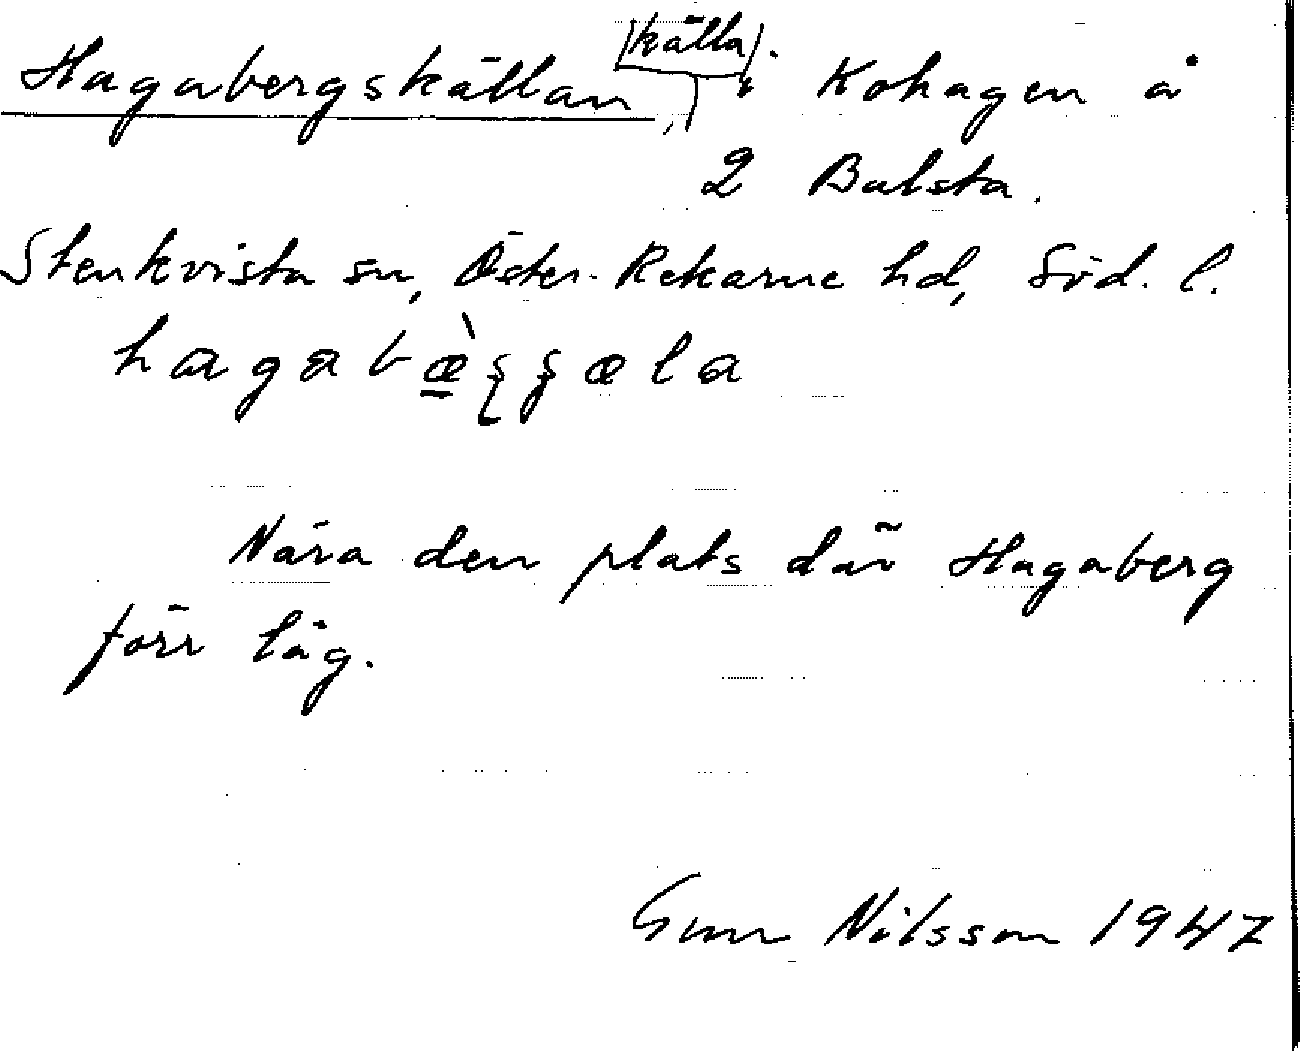 Hagabergskällan, /källa/. i Kohagen å
2 Balsta.
Stenkvista sn, Öster-Rekarne hd, Söd. l.
Nära den plats där Hagaberg
förr låg.
Gun Nilsson 1947